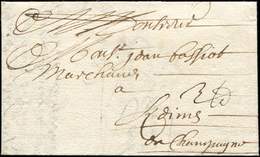 A Monsieur
Monsr. jean bassiot
Marchand
a
Reims
en Champagne